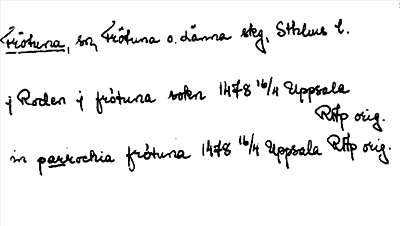 Frötuna, sn, Frötuna o. Länna skg, Sthlms l.
j Roden j frötuna sokn 1478 16/4 Uppsala
RAp orig.
in parrochia frötuna 1478 16/4 Uppsala RAp orig.